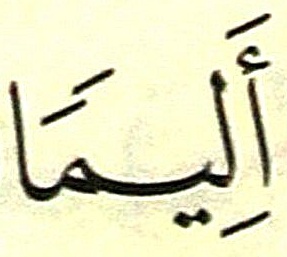 أَلِيمًا